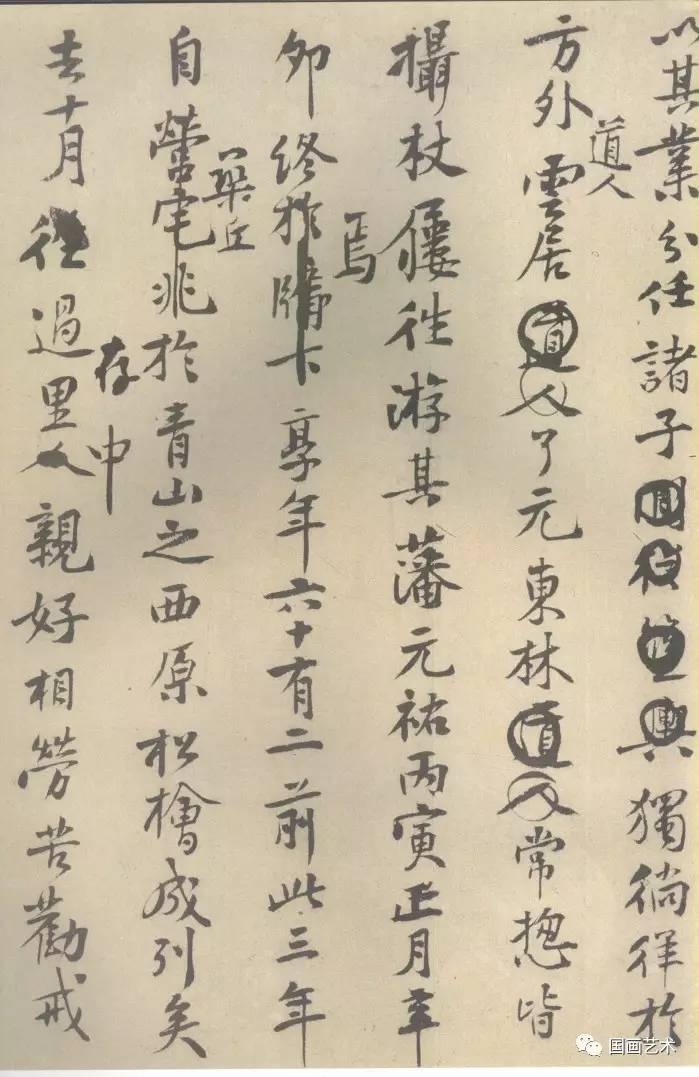 以其業分任諸子獨徜徉於
道人
方外雲居道人了元東林道人常揔皆
攝杖屨往游其藩元祐丙寅正月辛
焉
卯終於牖下享年六十有二前此三年
築丘
自營宅兆於青山之西原松檜成列矣
存中
去十月往過里人親好相勞苦勸戒
国画艺术